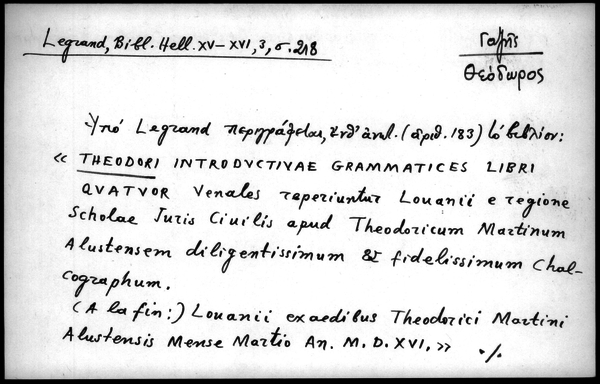 Legrand, Bibl. Hell. XV–XVI, 3, σ. 218
Γαζῆς
Θεόδωρος
Ὑπό Legrand περιγράφεται, (ἀριθ. 183) τό βιβλίον:
« THEODORI INTRODVCTIVAE GRAMMATICES LIBRI
QVATVOR Venales reperiuntur Louanii e regione
Scholae Juris Ciuilis apud Theodoricum Martinum
Alustensem diligentissimum & fidelissimum Chal-
cographum.
(A la fin:) Louanii exaedibus Theodorici Martini
Alustensis Mense Martio An. M. D. XVI. » ./.